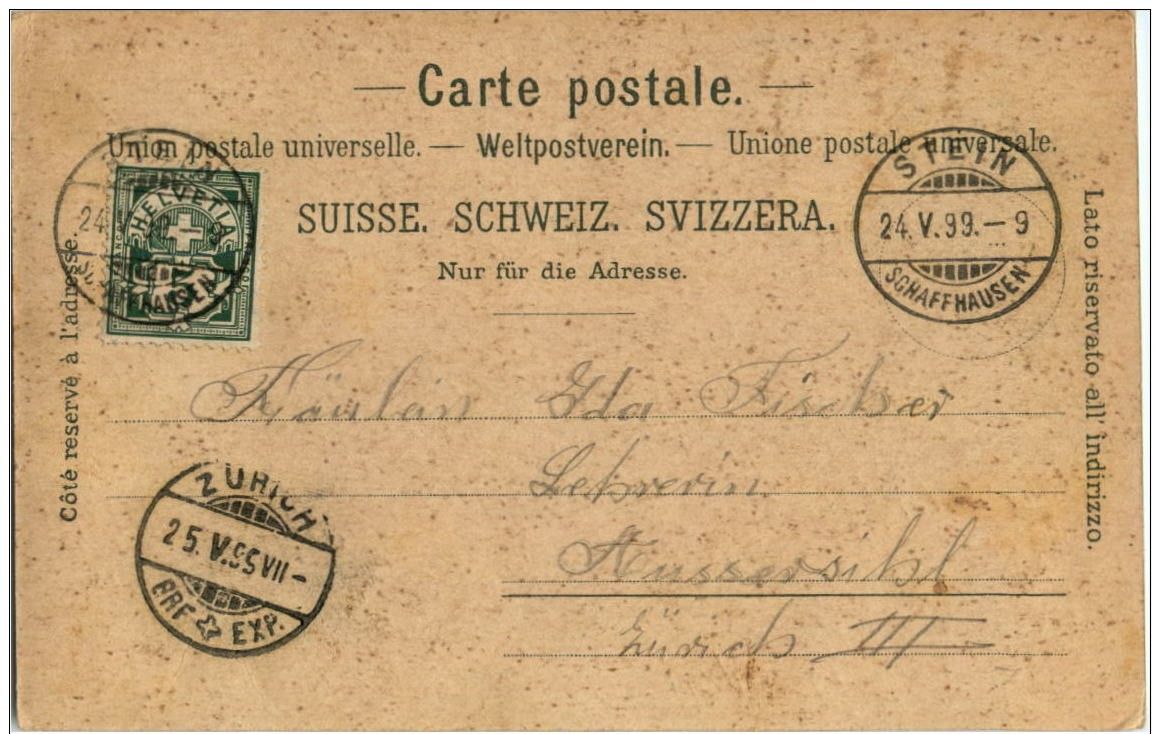 — Carte postale. —
Union postale universelle. — Weltpostverein. — Unione postale universale.
SUISSE. SCHWEIZ. SVIZZERA.
Nur für die Adresse.
Côté reservé à l'adresse.
Lato riservato all' indirizzo.
HELVETIA
24.
SCHAFFHAUSEN
STEIN
24.V.99.-9
SCHAFFHAUSEN
Fräulein Ida Fischer
Lehrerin
Aussersihl
Zürich III
ZÜRICH
25.V.99 VII-
BRF EXP.